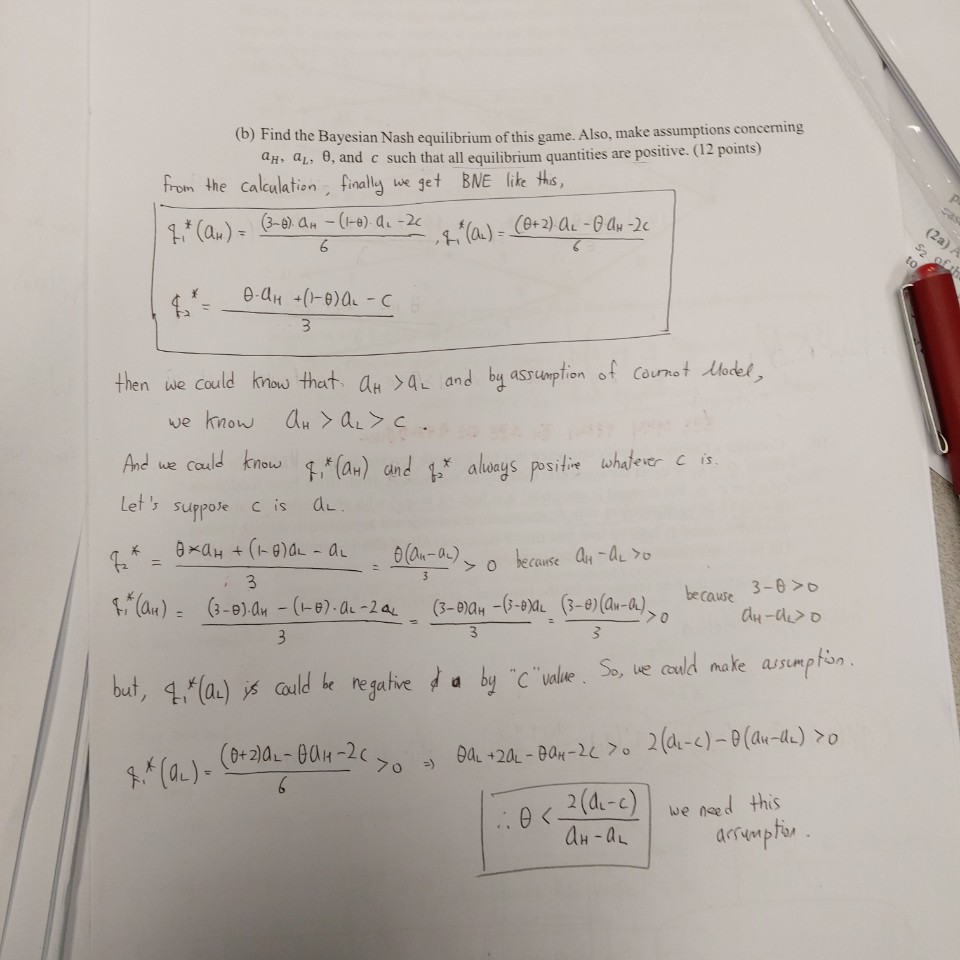 (b) Find the Bayesian Nash equilibrium of this game. Also, make assumptions concerning
a_H, a_L, θ, and c such that all equilibrium quantities are positive. (12 points)
from the calculation, finally we get BNE like this,
q₁*(a_H) = ((3-θ)·a_H - (1-θ)·a_L - 2c)/6 , q₁*(a_L) = ((θ+2)·a_L - θ·a_H - 2c)/6
q₂* = (θ·a_H + (1-θ)a_L - c)/3
then we could know that a_H > a_L and by assumption of cournot Model,
we know a_H > a_L > c.
And we could know q₁*(a_H) and q₂* always positive whatever c is.
Let's suppose c is a_L.
q₂* = (θ×a_H + (1-θ)a_L - a_L)/3 = θ(a_H-a_L)/3 > 0 because a_H - a_L > 0
q₁*(a_H) = ((3-θ)·a_H - (1-θ)·a_L - 2a_L)/3 = ((3-θ)a_H - (3-θ)a_L)/3 = (3-θ)(a_H-a_L)/3 > 0 because 3-θ > 0
a_H-a_L > 0
but, q₁*(a_L) could be negative by "c" value. So, we could make assumption.
q₁*(a_L) = ((θ+2)a_L - θa_H - 2c)/6 > 0 ⇒ θa_L + 2a_L - θa_H - 2c > 0 2(a_L-c) - θ(a_H-a_L) > 0
∴ θ < 2(a_L-c)/(a_H-a_L) we need this
assumption.
(2a)
S₂ of
to